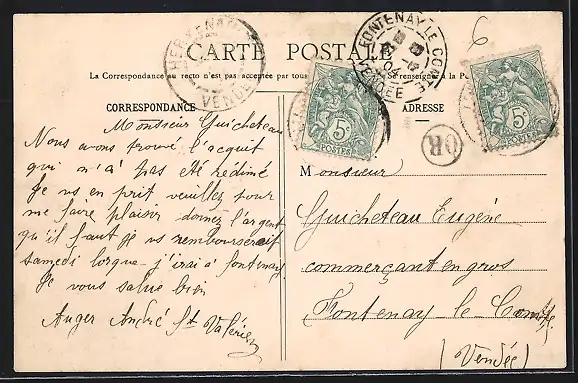 6
CARTE POSTALE
FONTENAY LE COMTE
04
VENDÉE
VENDÉE
La Correspondance au recto n'est pas acceptée par tous
Se renseigner à la
CORRESPONDANCE
ADRESSE
5c
POSTES
5c
POSTES
OR
Monsieur Guicheteau
Nous avons trouvé l'acquit
qui n'a pas été rédimé
je vs en prit veuillez pour
me faire plaisir donnez l'argent
qu'il faut je vs rembourserait
samedi lorque j'irai a fontenay
Je vous salue bien
Auger André St Valérien
Monsieur
Guicheteau Eugène
commerçant en gros
Fontenay-le-Comte
(Vendée)